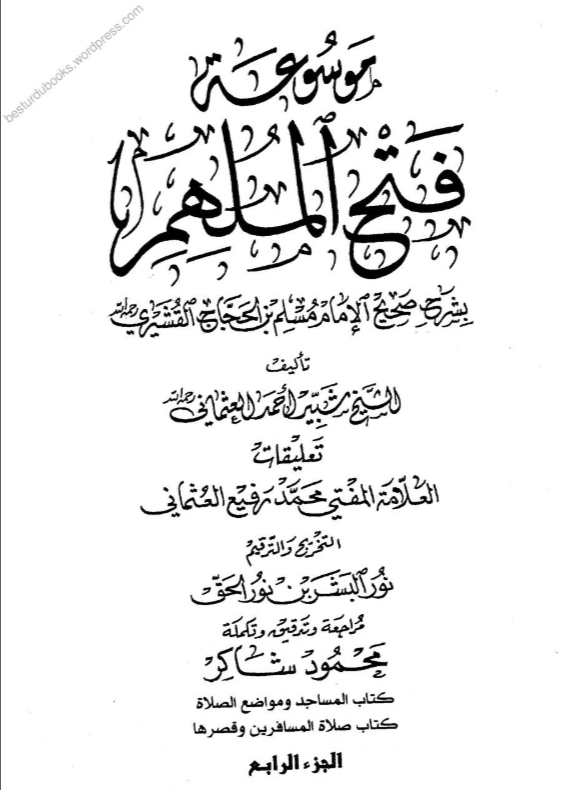 besturdubooks.wordpress.com
موسوعة
فتح الملهم
بشرح صحيح الإمام مسلم بن الحجاج القشيري رحمه الله
تأليف
الشيخ شبير أحمد العثماني رحمه الله
تعليقات
العلامة المفتي محمد رفيع العثماني
التخريج والترقيم
نور البشر بن نور الحق
مراجعة وتدقيق وتكملة
محمود شاكر
كتاب المساجد ومواضع الصلاة
كتاب صلاة المسافرين وقصرها
الجزء الرابع